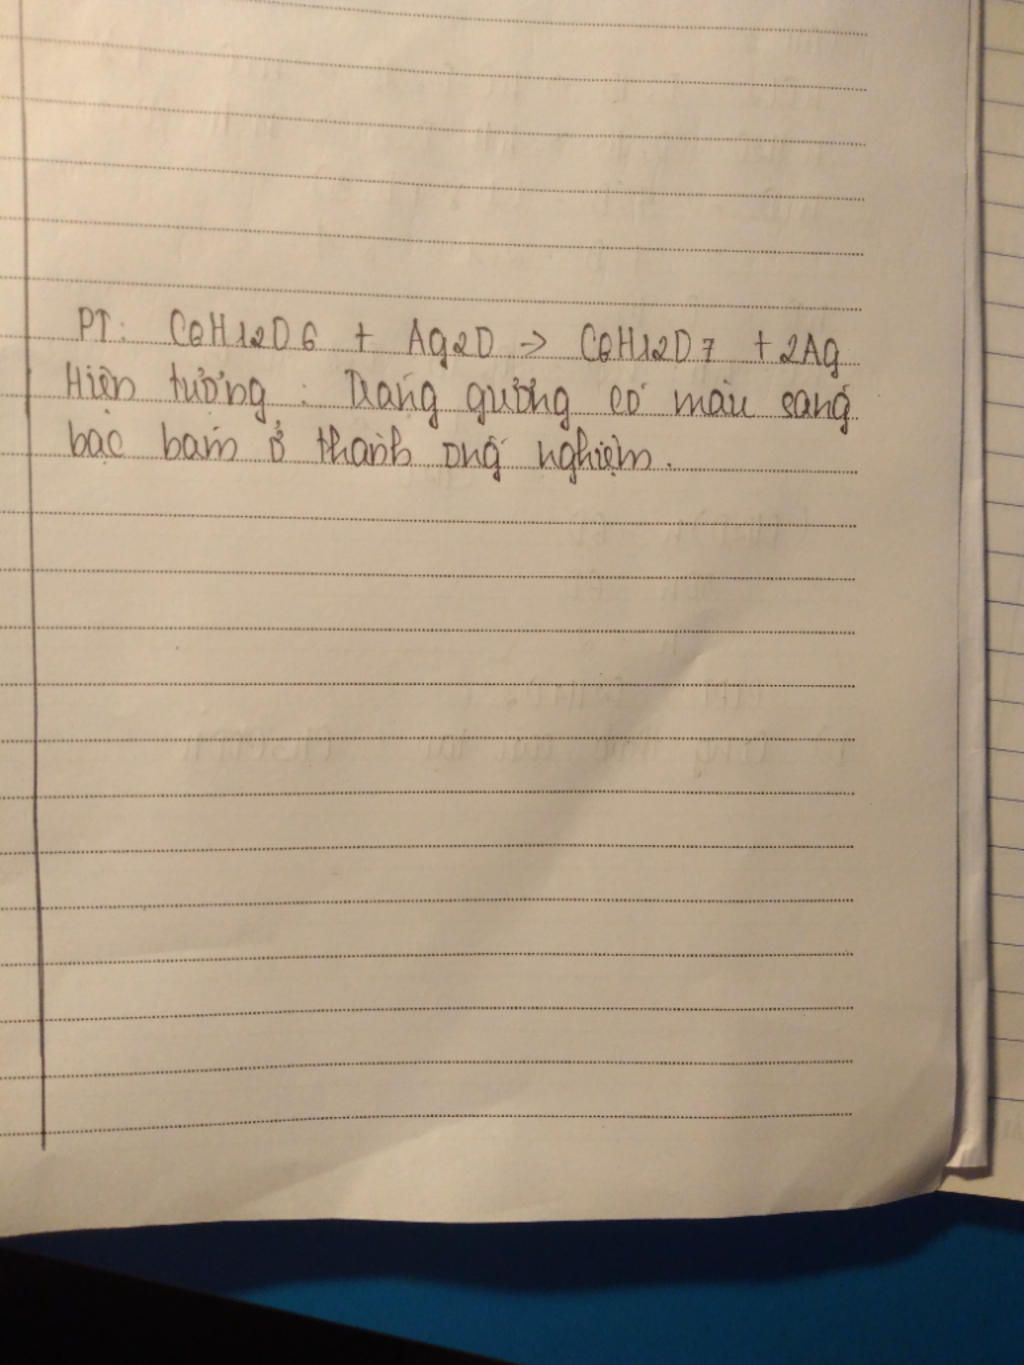 PT: C6H12O6 + Ag2O → C6H12O7 + 2Ag
Hiện tượng: Tráng gương có màu sáng
bạc bám ở thành ống nghiệm.